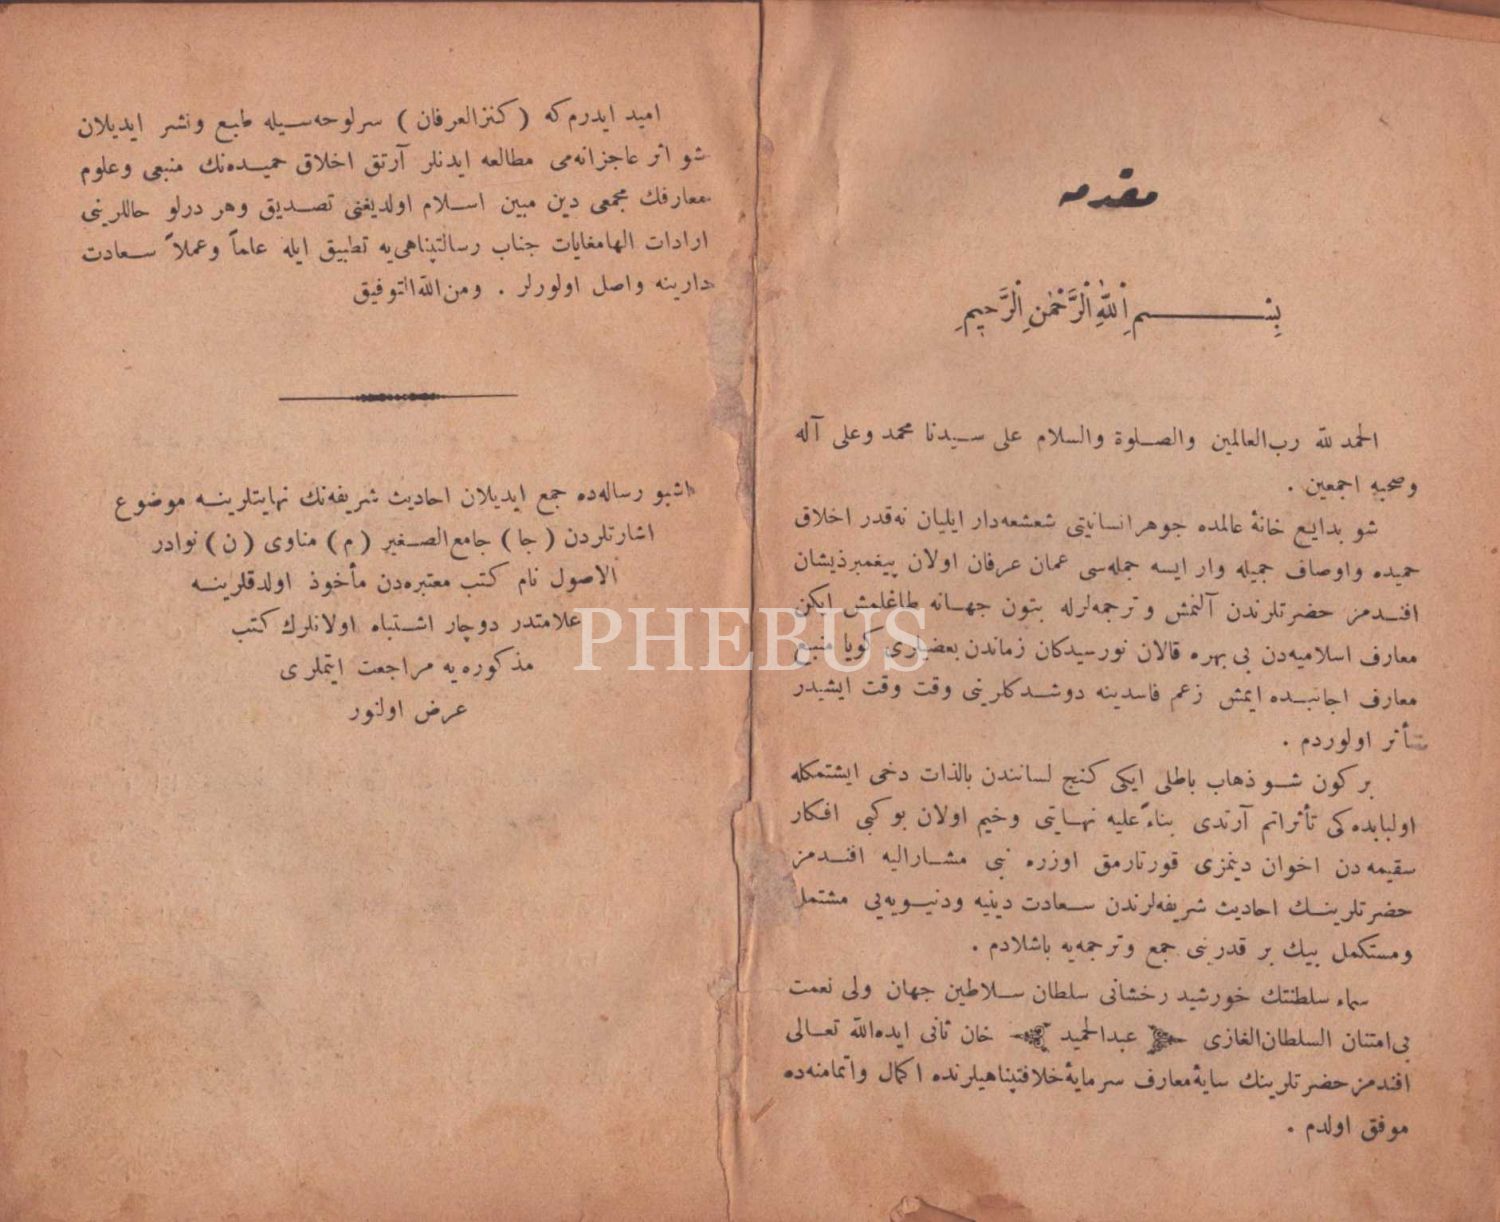 مقدمه
بِسْمِ اللّٰهِ الرَّحْمٰنِ الرَّحِيمِ
الحمد لله رب‌العالمين والصلوة والسلام على سيدنا محمد وعلى آله
وصحبه اجمعين .
شو بدايع خانهٔ عالمده جوهر انسانيتى شعشعه‌دار ايليان نه‌قدر اخلاق
حميده واوصاف جميله وار ايسه جمله‌سى عمان عرفان اولان پيغمبرذيشان
افندمز حضرتلرندن آلنمش و ترجمه‌لرله بتون جهانه طاغلمش ايكن
معارف اسلاميه‌دن بى بهره قالان نورسيدكان زماندن بعضيلرى كويا منبع
معارف اجانبده ايمش زعم فاسدينه دوشدكلرينى وقت وقت ايشيدر
متأثر اولوردم .
بر كون شو ذهاب باطلى ايكى كنج لسانندن بالذات دخى ايشتمكله
اولبابده‌كى تأثراتم آرتدى بناءً عليه نهايتى وخيم اولان بو كبى افكار
سقيمه‌دن اخوان دينمزى قورتارمق اوزره نبى مشاراليه افندمز
حضرتلرينك احاديث شريفه‌لرندن سعادت دينيه ودنيويه‌يى مشتمل
ومستكمل بيك بر قدرينى جمع و ترجمه‌يه باشلادم .
سماء سلطنتك خورشيد رخشانى سلطان سلاطين جهان ولى نعمت
بى‌امتنان السلطان‌الغازى عبدالحميد خان ثانى ايده‌الله تعالى
افندمز حضرتلرينك سايهٔ معارف سرمايهٔ خلافتپناهيلرنده اكمال واتمامنه‌ده
موفق اولدم .
اميد ايدرم كه ( كنزالعرفان ) سرلوحه‌سيله طبع ونشر ايديلان
شو اثر عاجزانه‌مى مطالعه ايدنلر آرتق اخلاق حميده‌نك منبعى وعلوم
معارفك مجمعى دين مبين اسلام اولديغنى تصديق وهر درلو حاللرينى
ارادات الهامغايات جناب رسالتپناهى‌يه تطبيق ايله علماً وعملاً سعادت
دارينه واصل اولورلر . ومن‌الله‌التوفيق
اشبو رساله‌ده جمع ايديلان احاديث شريفه‌نك نهايتلرينه موضوع
اشارتلردن ( جا ) جامع‌الصغير ( م ) مناوى ( ن ) نوادر
الاصول نام كتب معتبره‌دن مأخوذ اولدقلرينه
علامتدر دوچار اشتباه اولانلرك كتب
مذكوره‌يه مراجعت ايتملرى
عرض اولنور
PHEBUS